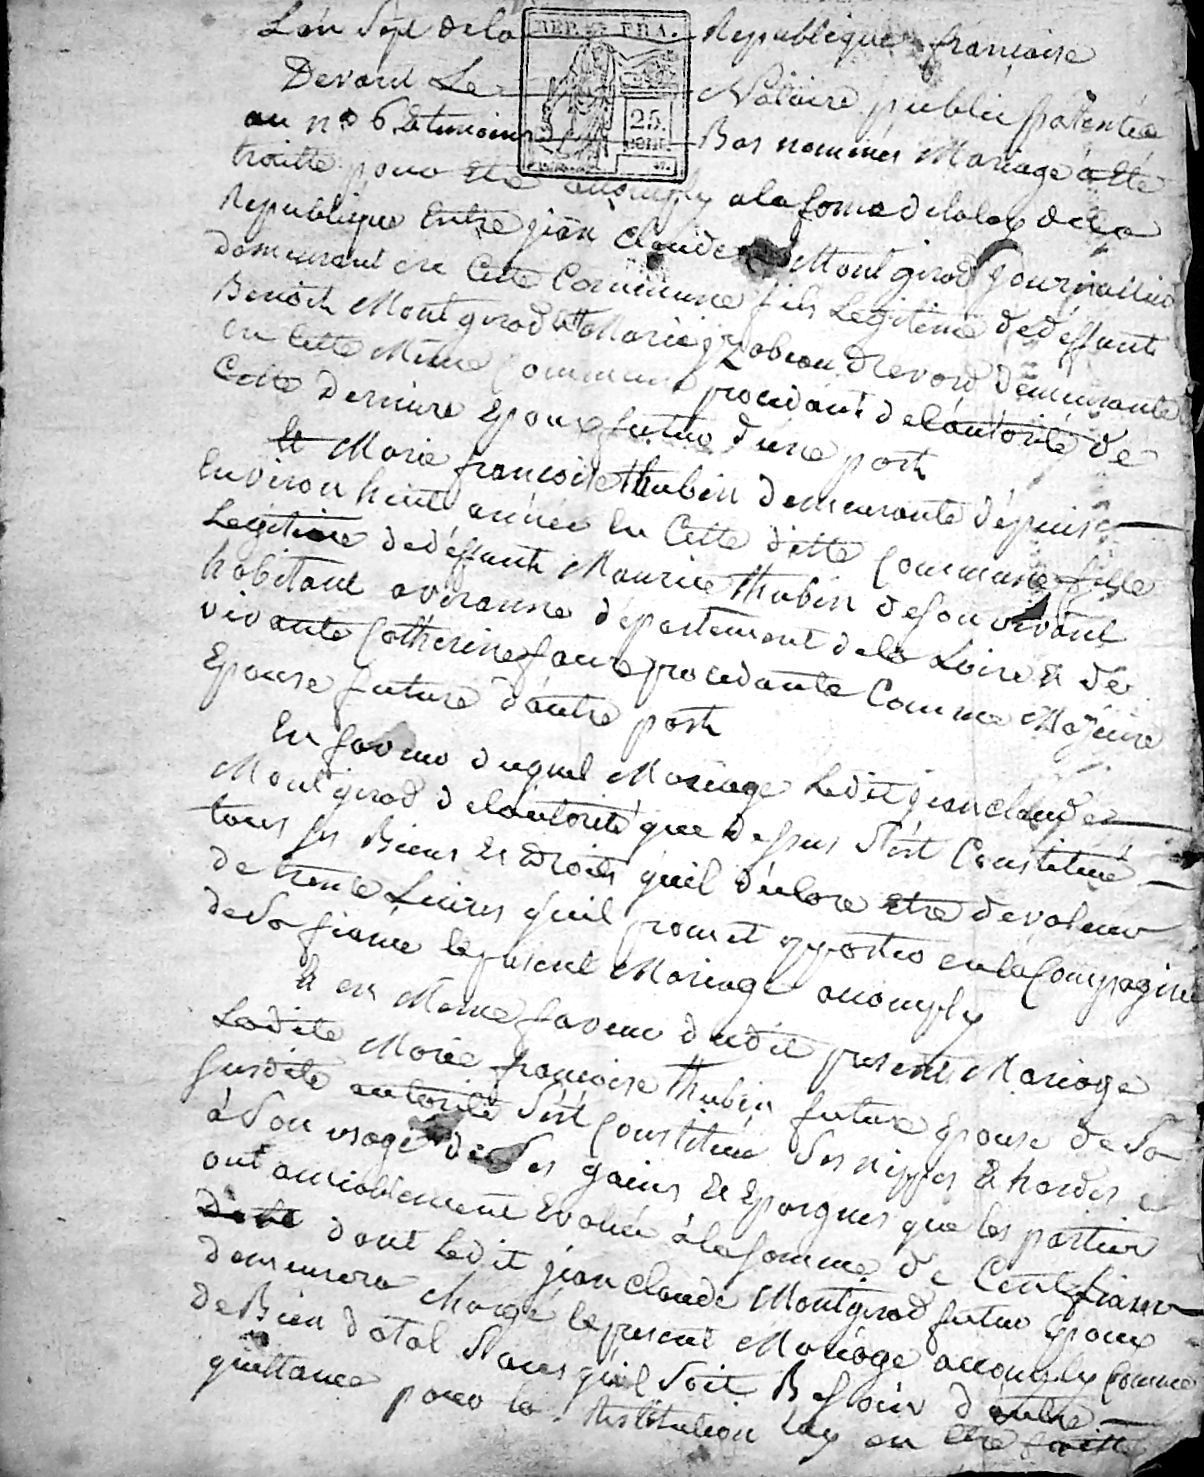 L'an Sept de la Republique françoise
REP. FRA.
25.
CENT.
Devant Le Notaire public patenté
au n° 6. et temoins Bas nommés Mariage à êté
traitté pour être accomply a la forme de la loy de la
Republique Entre jean Claude Montgirod journallier
demeurant en Cette Commune fils Legitime de deffunt
Benoit Montgirod et Marie izabeau Drevord demeurante
en Cette Même Commune procédant de l'autorité de
Cette derniere Epoux futur d'une part
Et Marie françoise Thubin demeurante dépuis
Environ huit année En Cette ditte Commune fille
Legitime de deffunt Maurice Thubin de son vivant
habitant a viranne département de la Loire & de
vivante Catherine faure procedante Comme Majeure
Epouse future d'autre part
En faveur duquel Mariage Ledit jean claude
Montgirod de l'autorité que dessus S'est Constitué
tous ses Biens et Droits qu'il déclare etre de valeur
de trente Livres qu'il promet apporter en la Compagnie
de Sa fiancée le present Mariage accomply
& en Meme faveur dudit present Mariage
Ladite Marie françoise Thubin future Epouse de Sa
susdite autorité S'est Constituée Ses nippes & hardes
à Son usage de Ses gains et Epargnes que les parties
ont amiablement Evaluée à la somme de Cent francs
dont Ledit jean Claude Montgirod futur Epoux
demeurera chargé le present Mariage accomply Comme
de Bien dotal Sans qu'il Soit Besoin d'autre
quittance pour la restitution luy en etre faitte